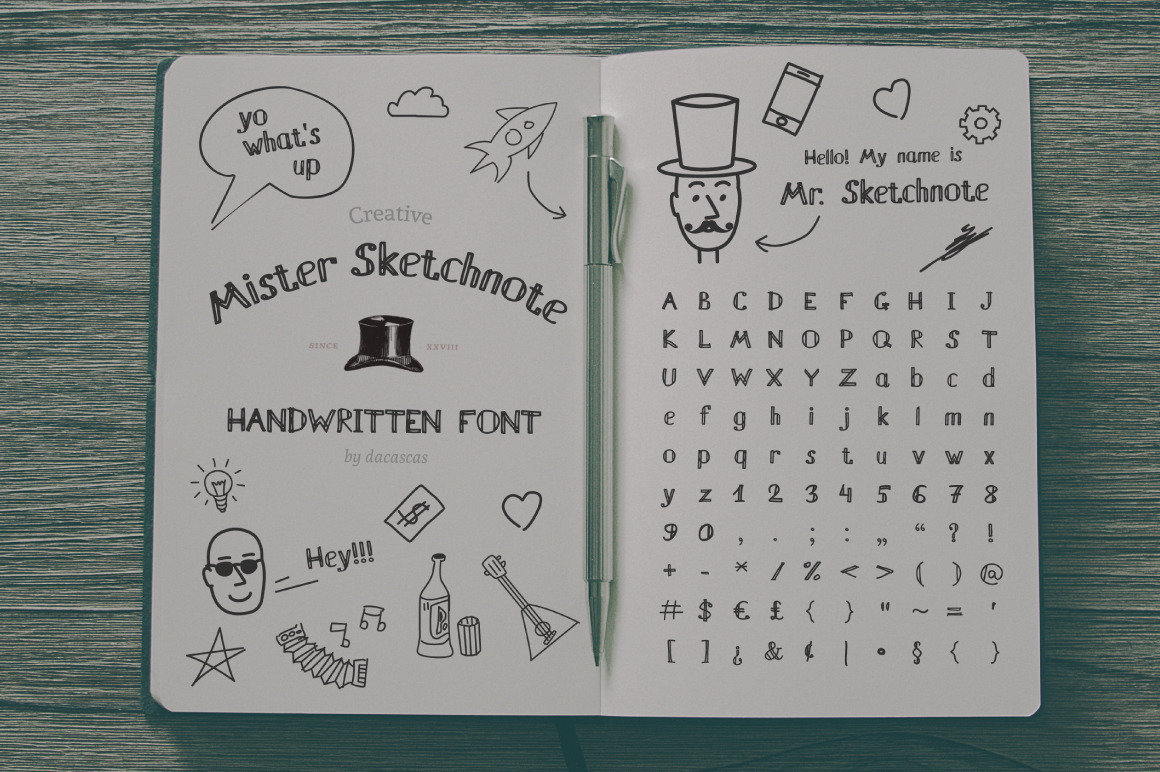 yo
what's
up
Creative
Mister Sketchnote
SINCE XXVIII
HANDWRITTEN FONT
by dacascas
$
Hey!!!
Hello! My name is
Mr. Sketchnote
A B C D E F G H I J
K L M N O P Q R S T
U V W X Y Z a b c d
e f g h i j k l m n
o p q r s t u v w x
y z 1 2 3 4 5 6 7 8
9 0 , . ; : „ “ ? !
+ - * / % < > ( ) @
# $ € £ { } " ~ = '
[ ] ¿ & ¢ | • § { }